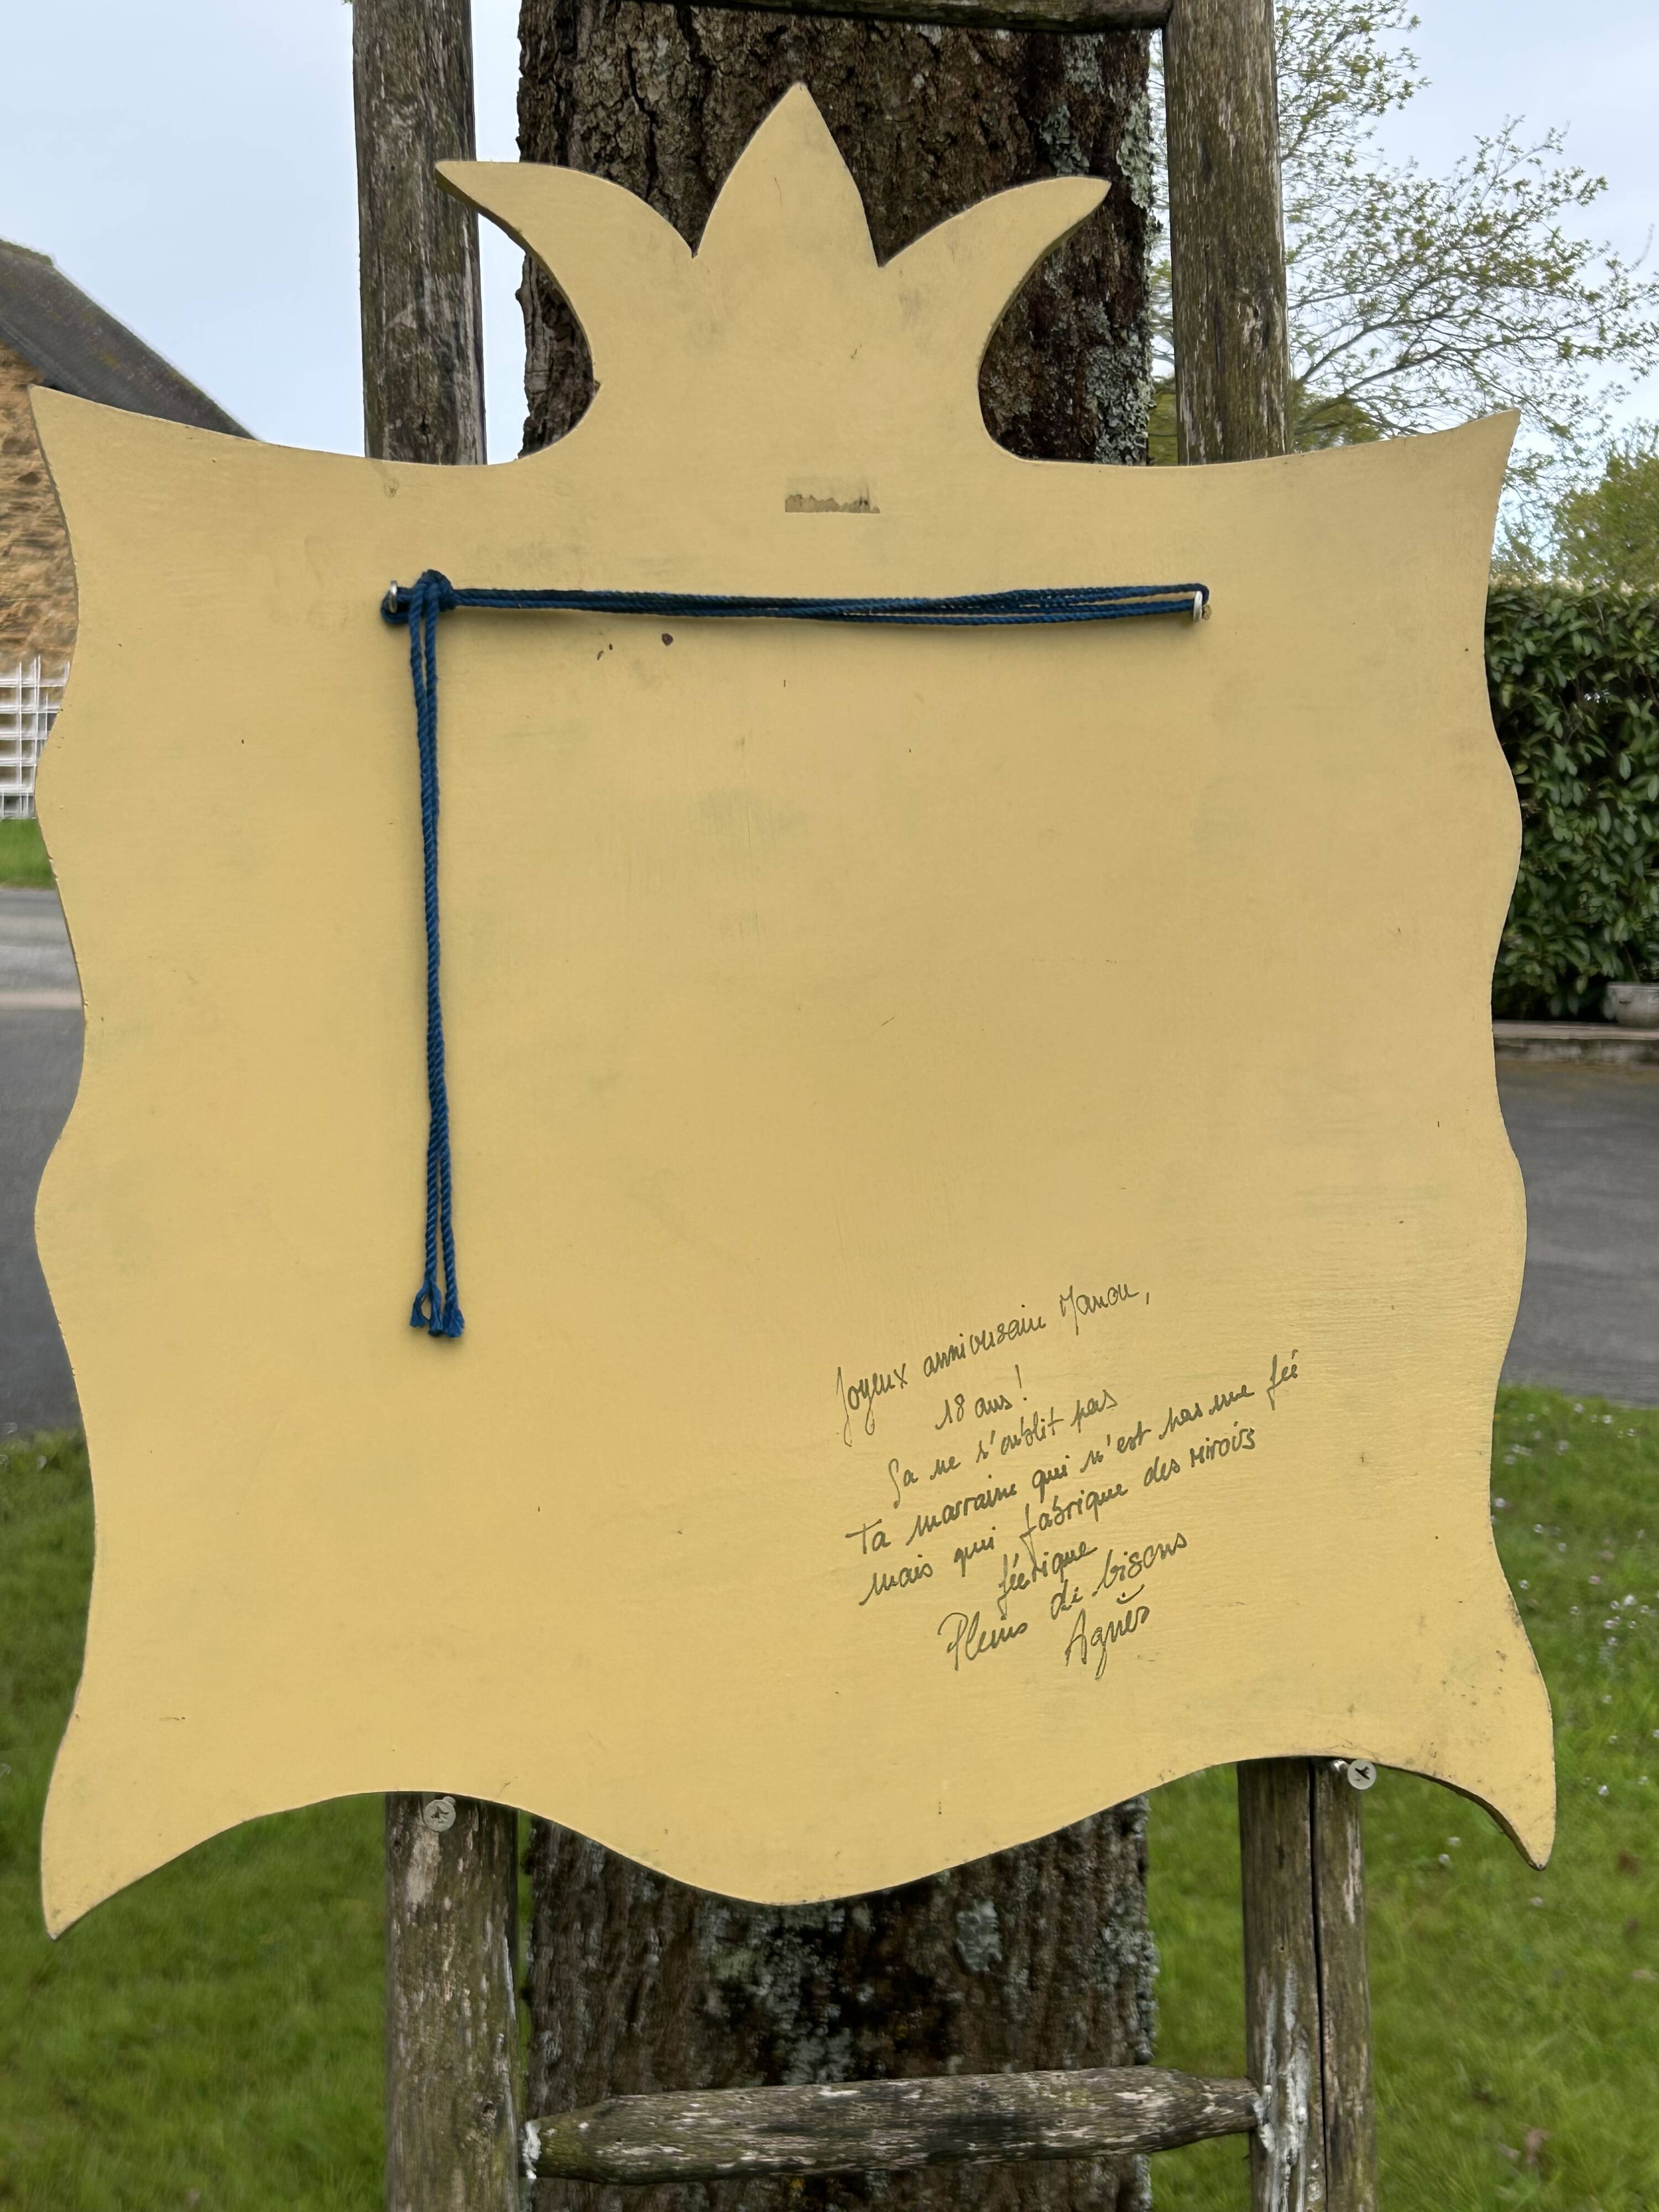 Joyeux anniversaire Manon,
18 ans !
Ça ne s'oublit pas
Ta marraine qui n'est pas une fée
mais qui fabrique des miroirs
féerique
Pleins de bisous
Agnès